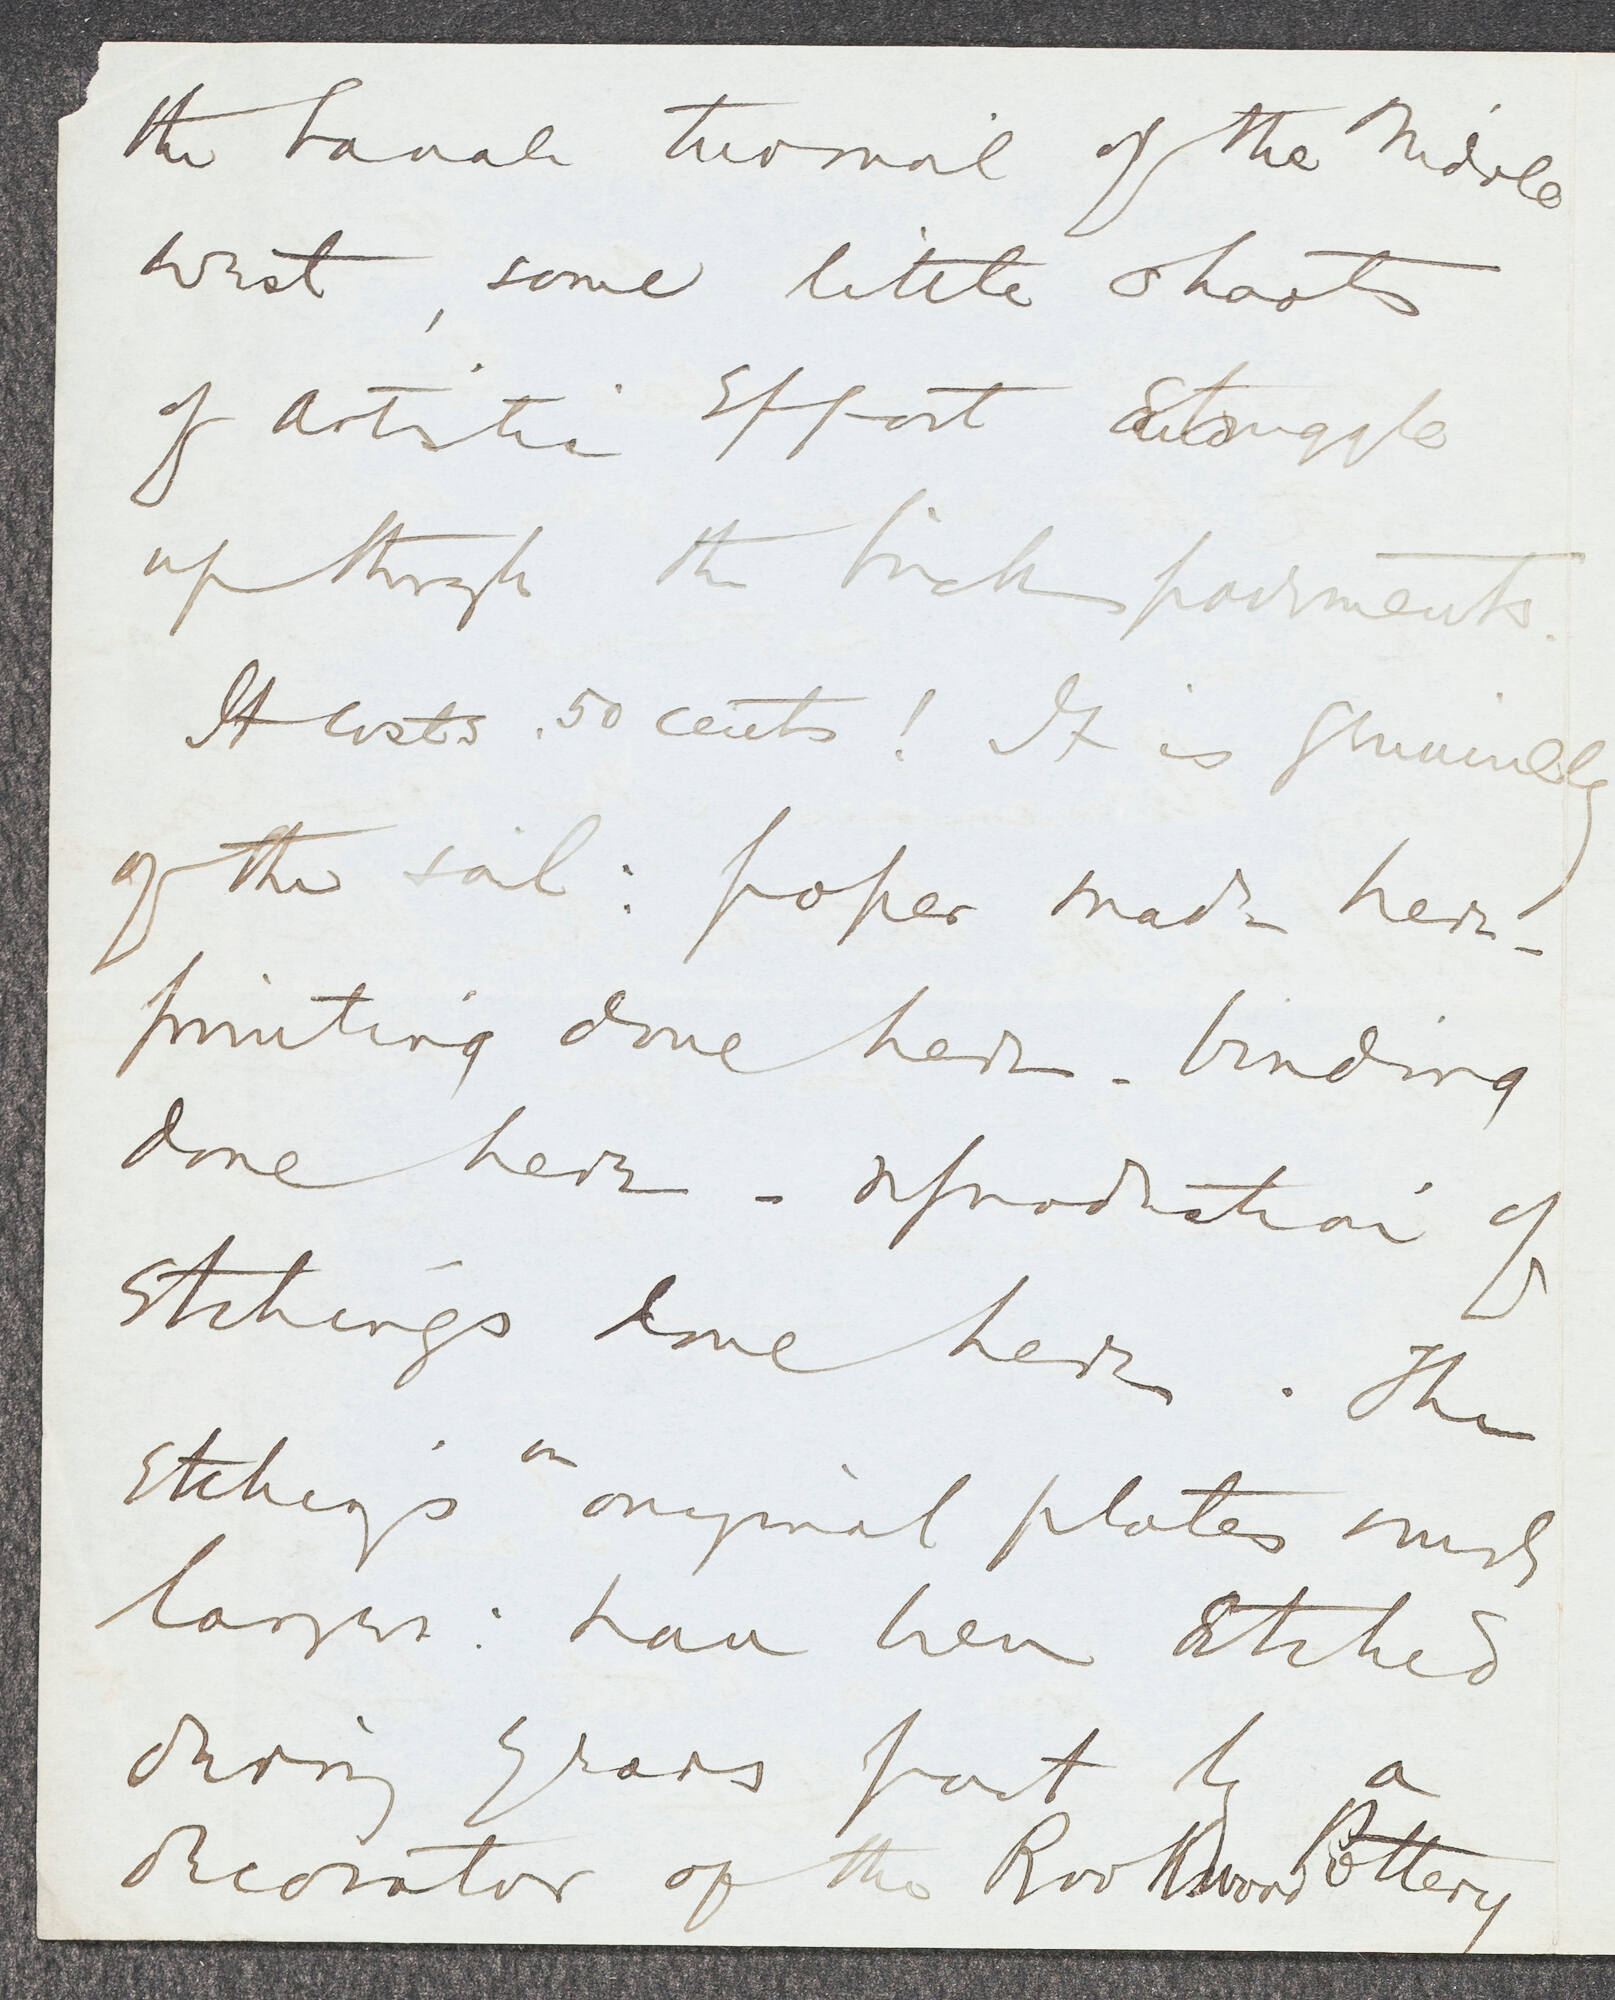 the banale turmoil of the Middle
west, some little shoots
of artistic effort struggle
up through the brick pavements.
It costs .50 cents! It is genuinely
of the soil: paper made here -
printing done here - binding
done here - reproduction of
etchings done here. The
etchings on original plates much
larger: have been etched
during years past by a
decorator of the Rookwood Pottery